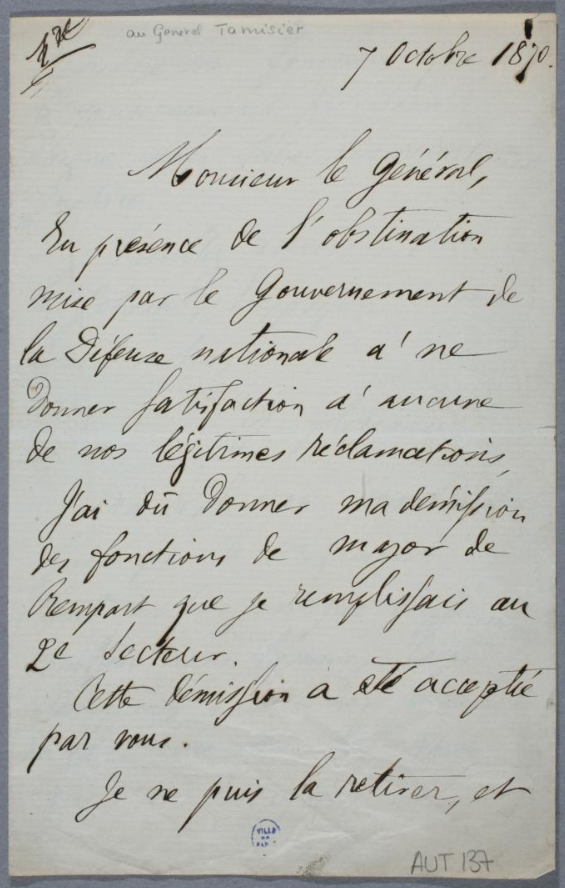 au Général Tamisier
7 Octobre 1870.
Monsieur le Général,
En présence de l'obstination
mise par le Gouvernement de
la Défense nationale à ne
donner satisfaction à aucune
de nos légitimes réclamations,
J'ai dû donner ma démission
des fonctions de major de
Rempart que je remplissais au
2e Secteur.
Cette démission a été acceptée
par vous.
Je ne puis la retirer, et
VILLE
DE
PARIS
AUT 137